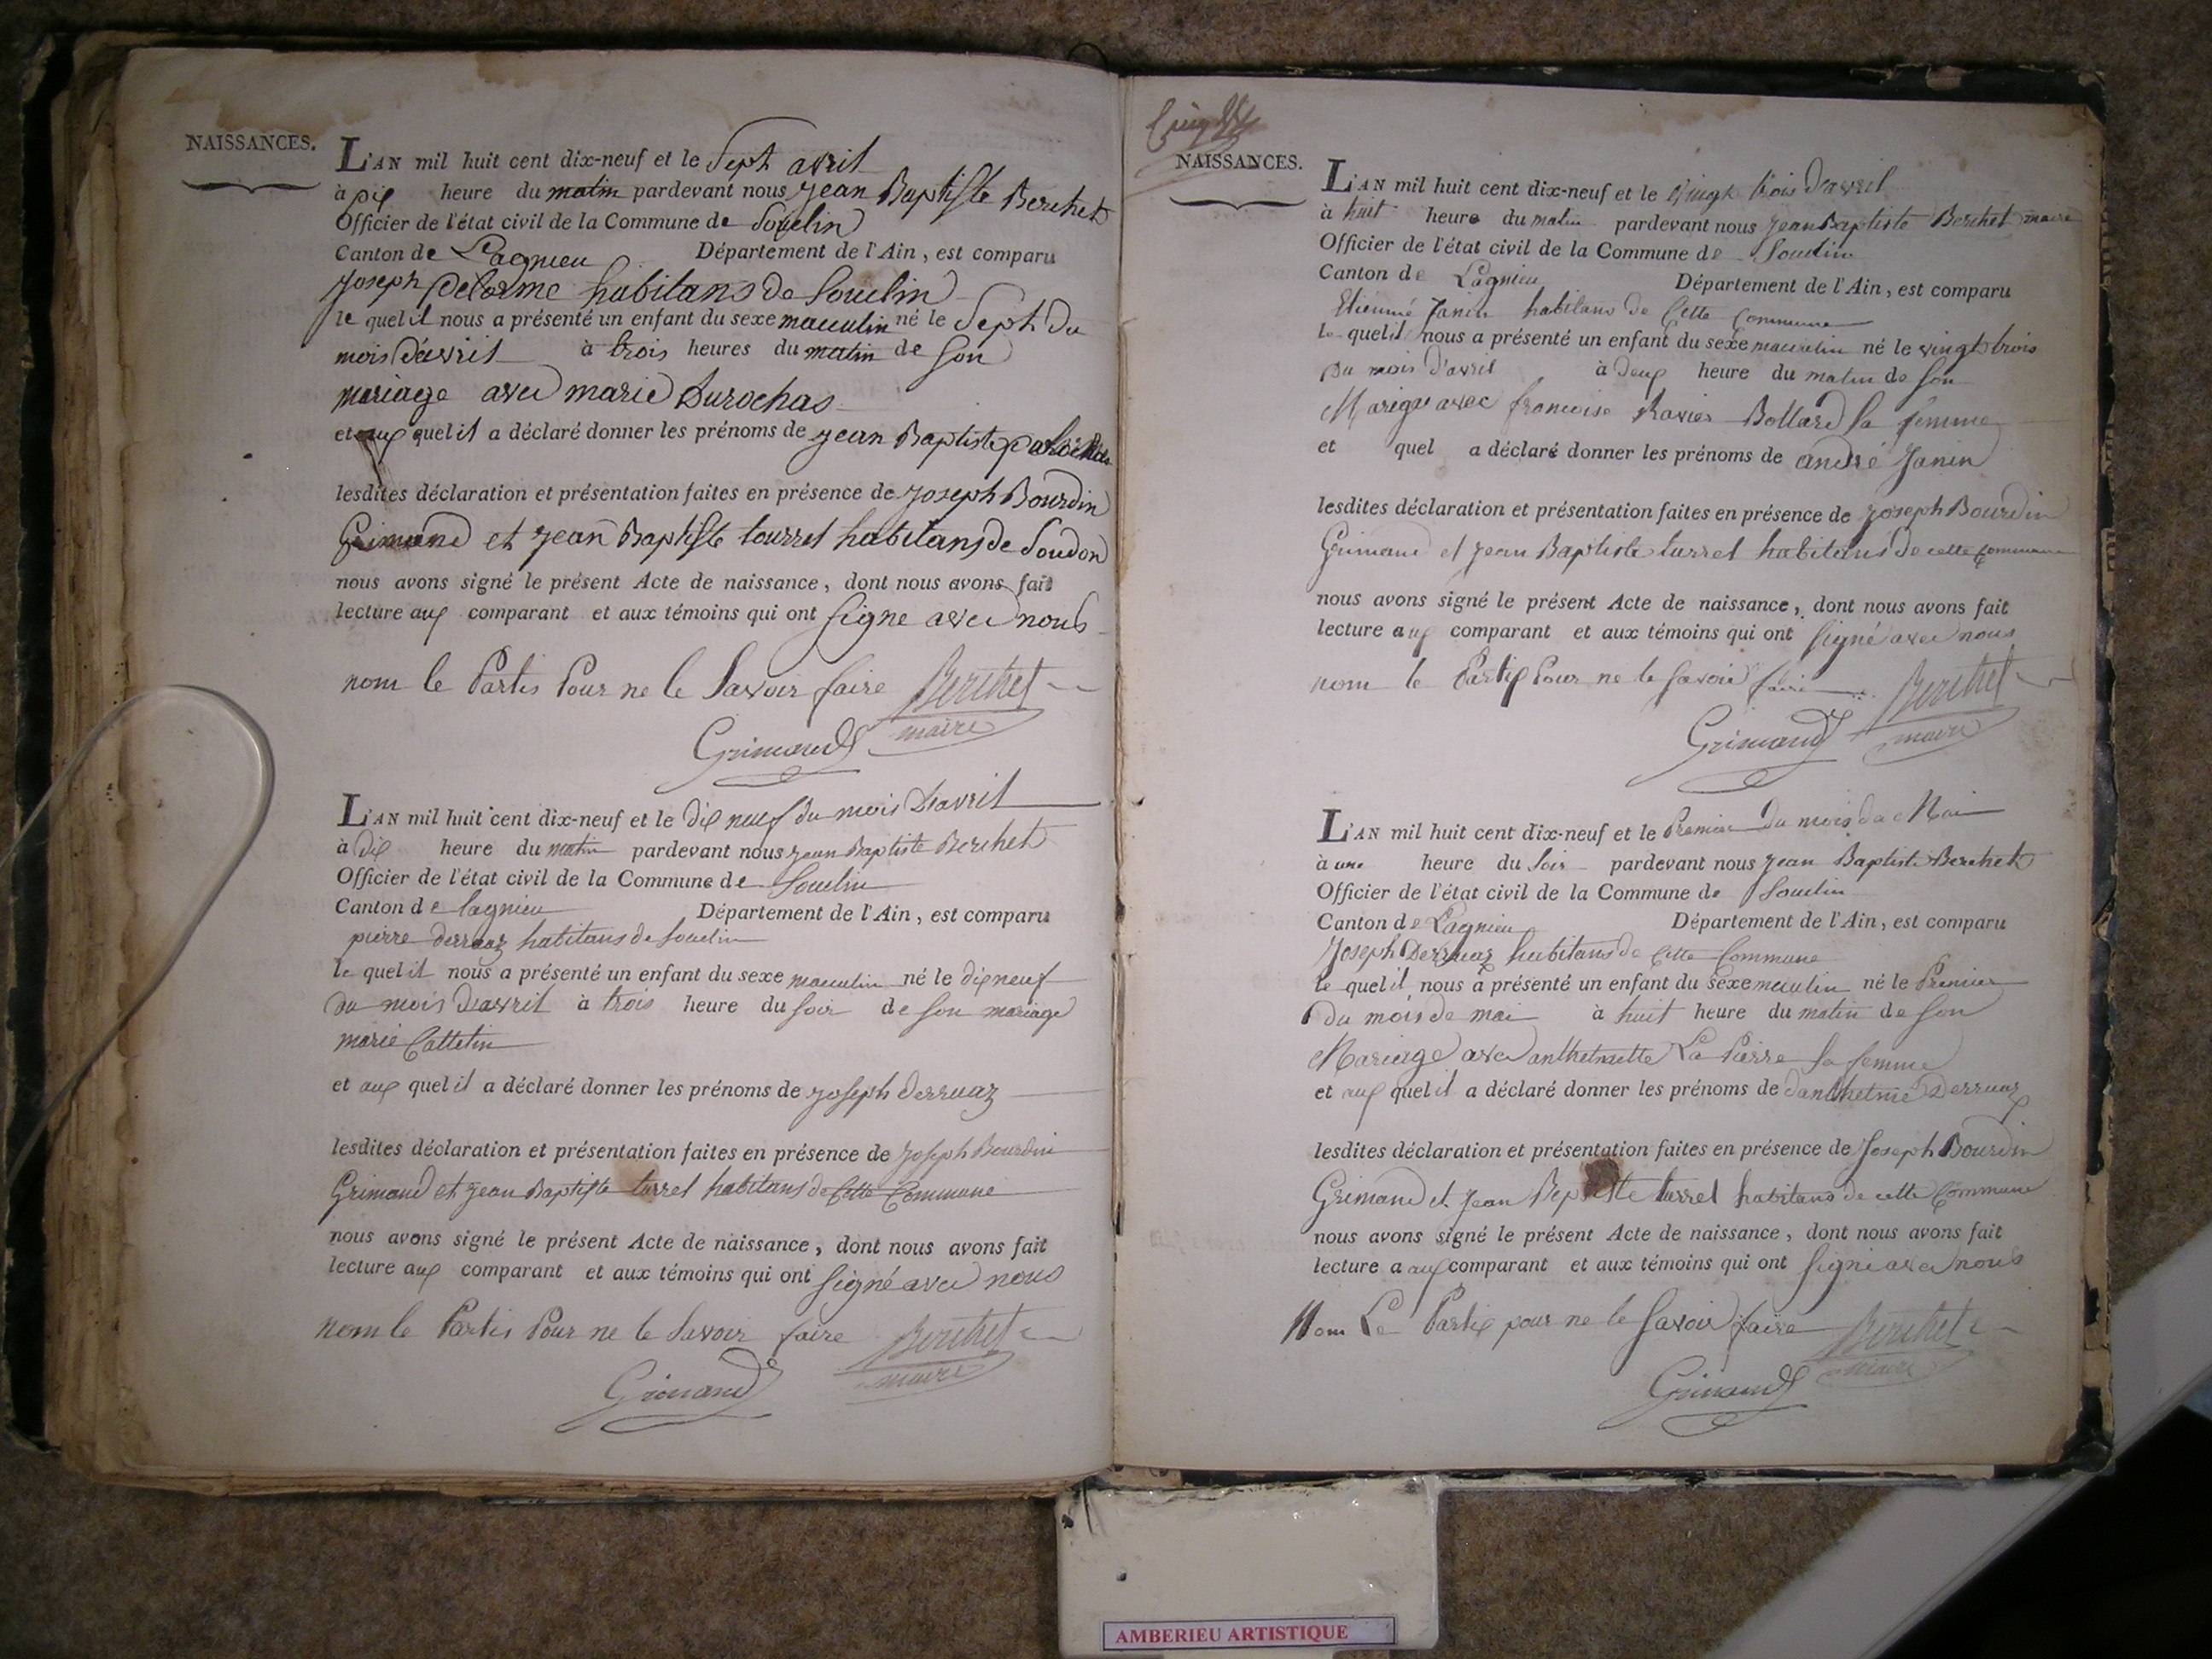 NAISSANCES.
L'AN mil huit cent dix-neuf et le Sept avril
à dix heure du matin pardevant nous jean Baptiste Berthet
Officier de l'état civil de la Commune de Souclin
Canton de Lagnieu Département de l'Ain, est comparu
Joseph Delorme habitans de Souclin
le quel il nous a présenté un enfant du sexe masculin né le Sept du
mois d'avril à trois heures du matin de son
mariage avec marie Durochas
et aux quel il a déclaré donner les prénoms de jean Baptiste
lesdites déclaration et présentation faites en présence de joseph Bourdin
Grimand et jean Baptiste tourret habitans de Soudon
nous avons signé le présent Acte de naissance, dont nous avons fait
lecture aux comparant et aux témoins qui ont signe avec nous
nom le Partis Pour ne le Savoir faire Berthet
maire
Grimand
L'AN mil huit cent dix-neuf et le dix neuf du mois Davril
à dix heure du matin pardevant nous jean Baptiste Berthet
Officier de l'état civil de la Commune de Souclin
Canton de lagnieu Département de l'Ain, est comparu
pierre derruaz habitans de Souclin
le quel il nous a présenté un enfant du sexe masculin né le dix neuf
du mois davril à trois heure du soir de son mariage
marie Cattetin
et aux quel il a déclaré donner les prénoms de joseph derruaz
lesdites déclaration et présentation faites en présence de joseph Bourdin
Grimand et jean Baptiste turret habitans de Cette Commune
nous avons signé le présent Acte de naissance, dont nous avons fait
lecture aux comparant et aux témoins qui ont signé avec nous
nom le Partis Pour ne le Savoir faire Berthet
maire
Grimand
NAISSANCES.
L'AN mil huit cent dix-neuf et le vingt trois d'avril
à huit heure du matin pardevant nous jean Baptiste Berthet maire
Officier de l'état civil de la Commune de Souclin
Canton de Lagnieu Département de l'Ain, est comparu
Etienne Janin habitans de Cette Commune
le quel il nous a présenté un enfant du sexe masculin né le vingt trois
du mois d'avril à deux heure du matin de son
Marige avec francoise Ravier Bollard sa femme
et quel a déclaré donner les prénoms de andré Janin
lesdites déclaration et présentation faites en présence de joseph Bourdin
Grimand et jean Baptiste turret habitans de cette Commune
nous avons signé le présent Acte de naissance, dont nous avons fait
lecture aux comparant et aux témoins qui ont signé avec nous
nom le Partix Pour ne le Savoir faire Berthet
maire
Grimand
L'AN mil huit cent dix-neuf et le Premier du mois de Mai
à une heure du soir pardevant nous jean Baptiste Berthet
Officier de l'état civil de la Commune de Souclin
Canton de Lagnieu Département de l'Ain, est comparu
Joseph Derruaz habitans de Cette Commune
le quel il nous a présenté un enfant du sexe masculin né le Premier
du mois de mai à huit heure du matin de son
Mariage avec anthelmette La Pierre sa femme
et aux quel il a déclaré donner les prénoms de danthelme Derruaz
lesdites déclaration et présentation faites en présence de Joseph Bourdin
Grimand et jean Baptiste turret habitans de cette Commune
nous avons signé le présent Acte de naissance, dont nous avons fait
lecture a aux comparant et aux témoins qui ont signé avec nous
Nom Le Partix pour ne le Savoir faire Berthet
maire
Grimand
AMBERIEU ARTISTIQUE